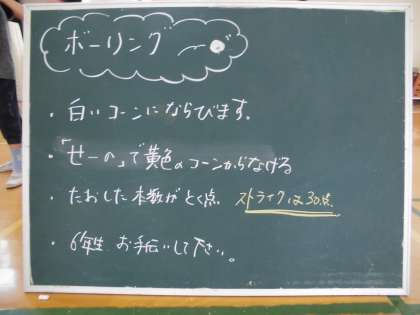 ボーリング
・白いコーンにならびます。
・「せーの」で黄色のコーンからなげる
・たおした本数がとく点 ストライクは30点
・6年生 お手伝いして下さい。